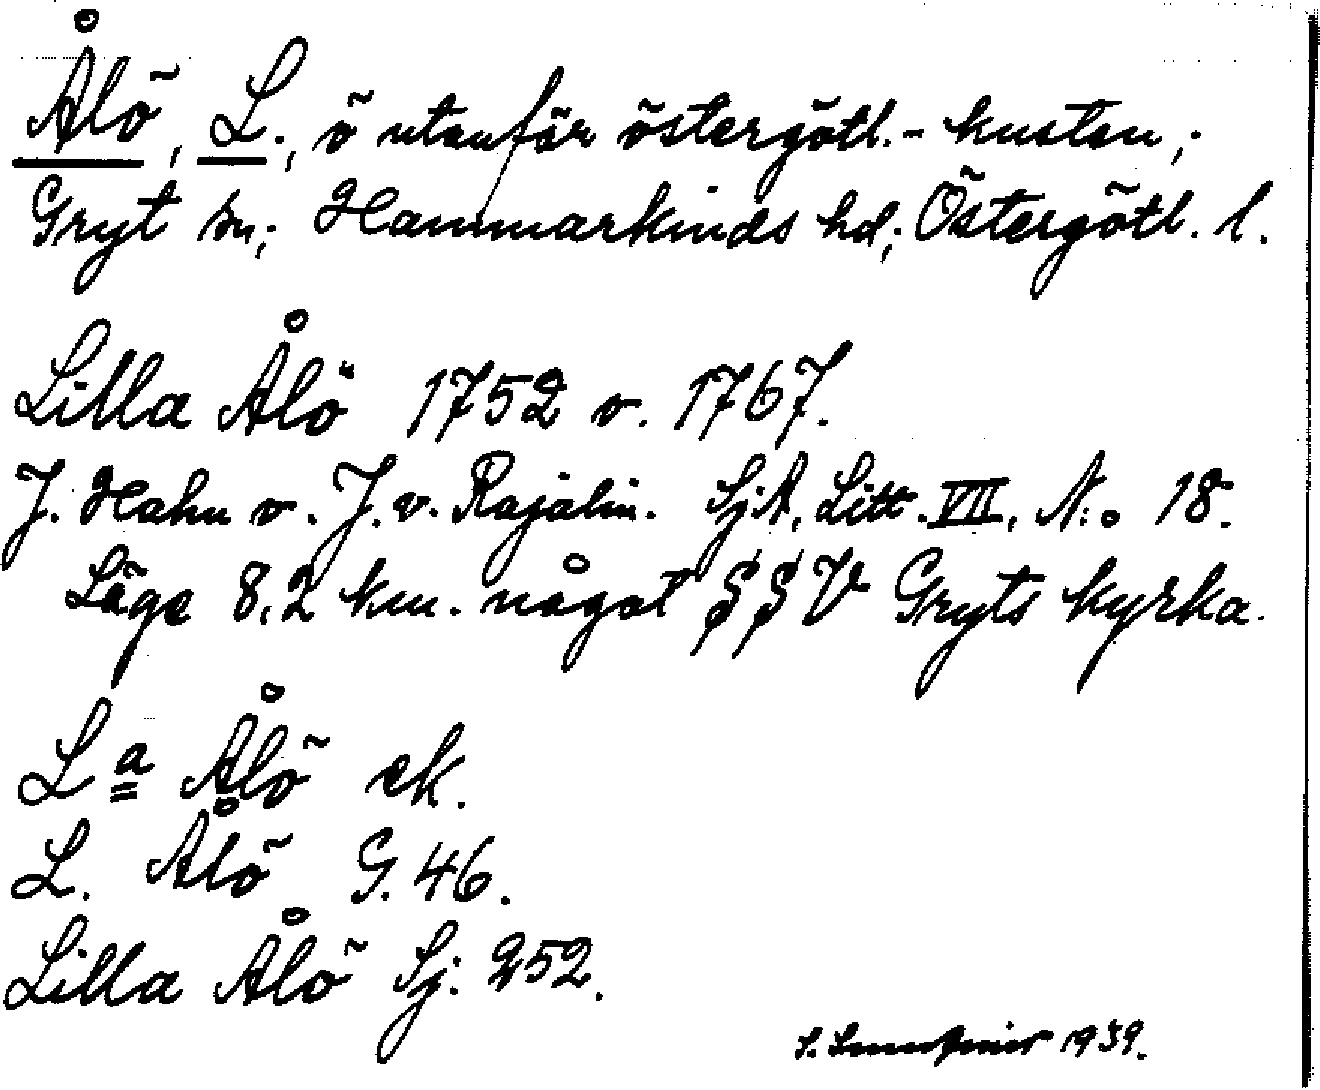 Ålö, L., ö utanför östergötl.-kusten;
Gryt sn; Hammarkinds hd; Östergötl. l.
Lilla Ålö 1752 o. 1767.
J. Hahn o. J. v. Rajalin. SjA, Litt. VII, N:o 18.
Läge 8,2 km. något SSV Gryts kyrka.
La Ålö ek.
L. Ålö G. 46.
Lilla Ålö Sj. 252.
S. 1939.